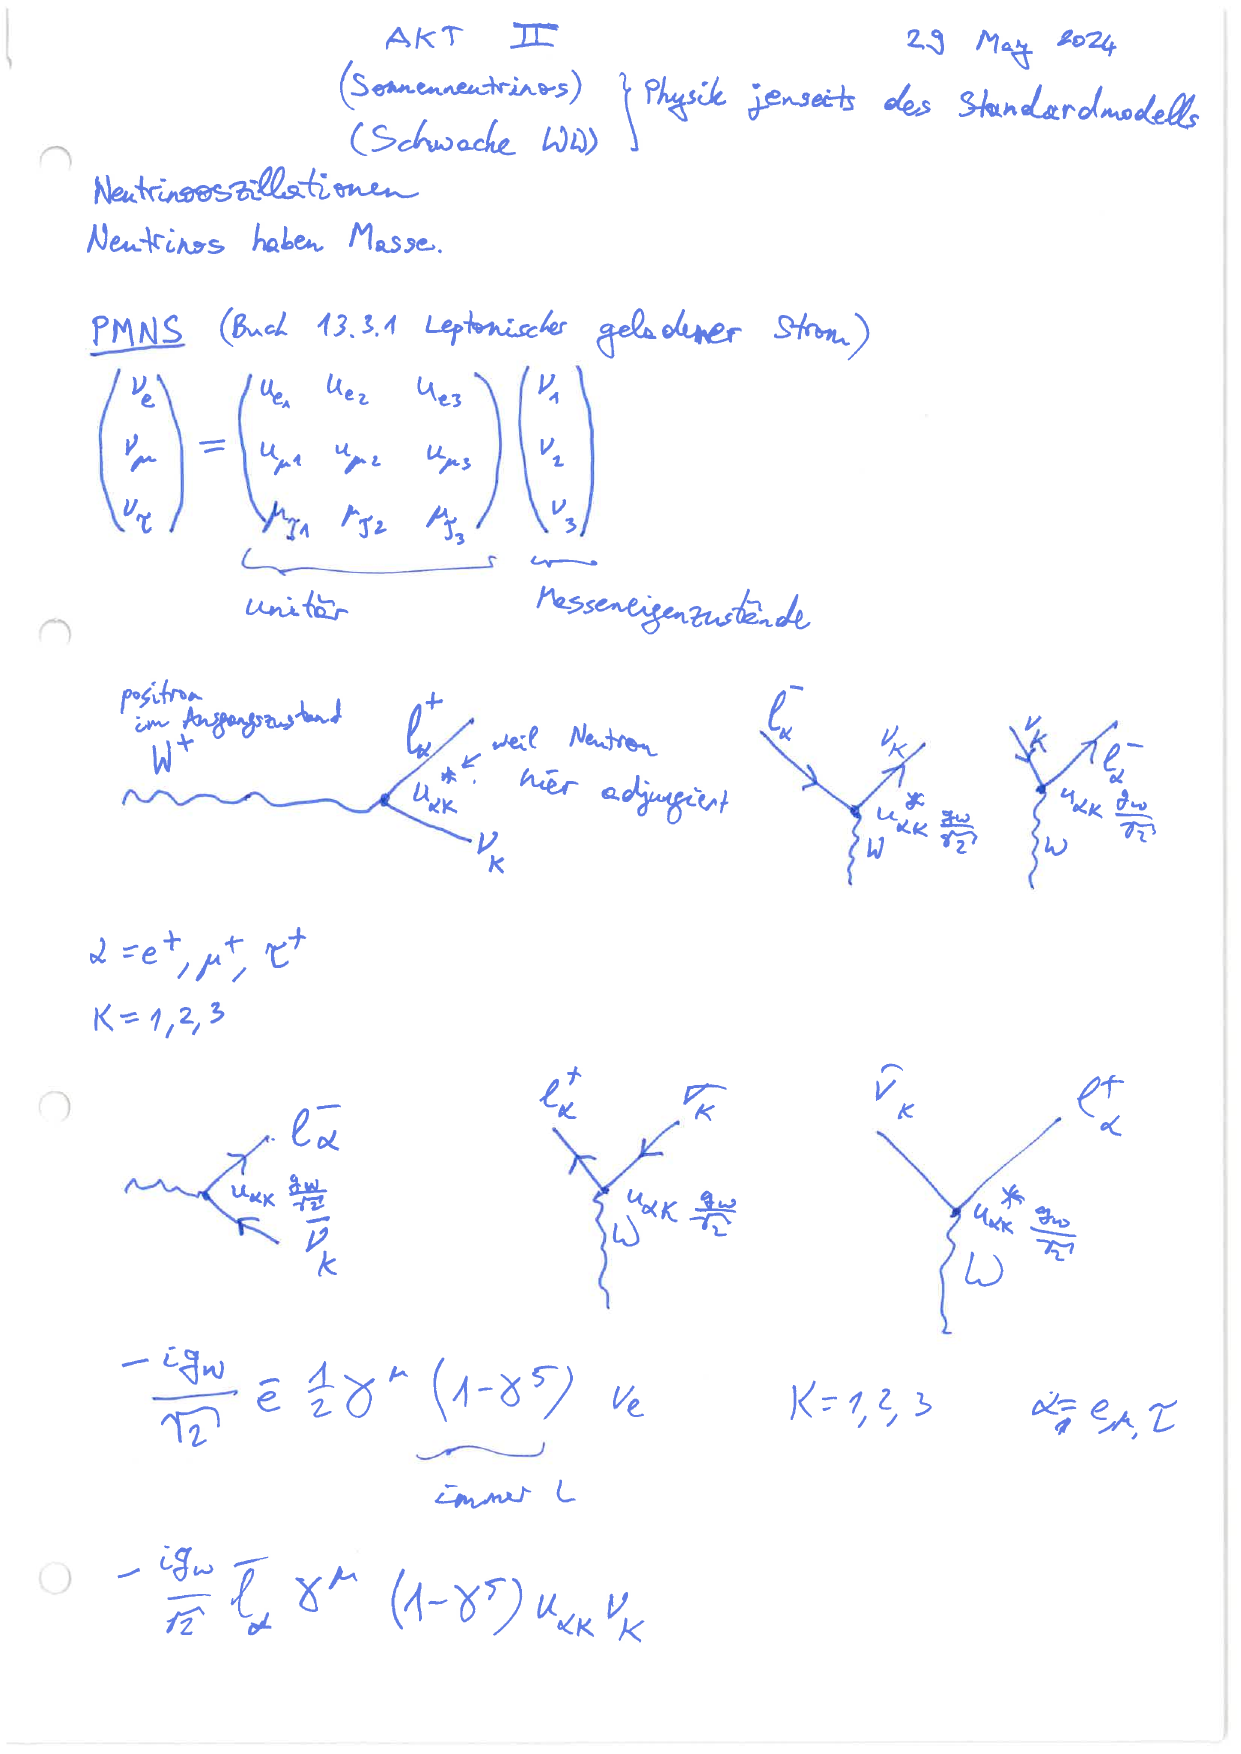 AKT II
29 May 2024
(Sonnenneutrinos) } Physik jenseits des Standardmodells
(Schwache WW)
Neutrinooszillationen
Neutrinos haben Masse.
PMNS (Buch 13.3.1 Leptonischer geladener Strom)
(ν_e ν_μ ν_τ) = (u_e1 u_e2 u_e3
u_μ1 u_μ2 u_μ3
μ_τ1 μ_τ2 μ_τ3) (ν_1 ν_2 ν_3)
unitär Masseneigenzustände
positron
im Ausgangszustand
W^+
l_α^+
u_αK^* ← weil Neutron
hier adjungiert
ν_K
l_α^- ν_K u_αK^* g_w/√2 W
ν_K l_α^- u_αK g_w/√2 W
α = e^+, μ^+, τ^+
K = 1, 2, 3
l_α^- u_αK g_w/√2 ν̄_K
l_α^+ ν̄_K u_αK g_w/√2 W
ν̄_K l_α^+ u_αK^* g_w/√2 W
-ig_w/√2 ē 1/2 γ^μ (1-γ^5) ν_e K = 1, 2, 3 α = e, μ, τ
immer L
-ig_w/√2 l̄_α γ^μ (1-γ^5) u_αK ν_K